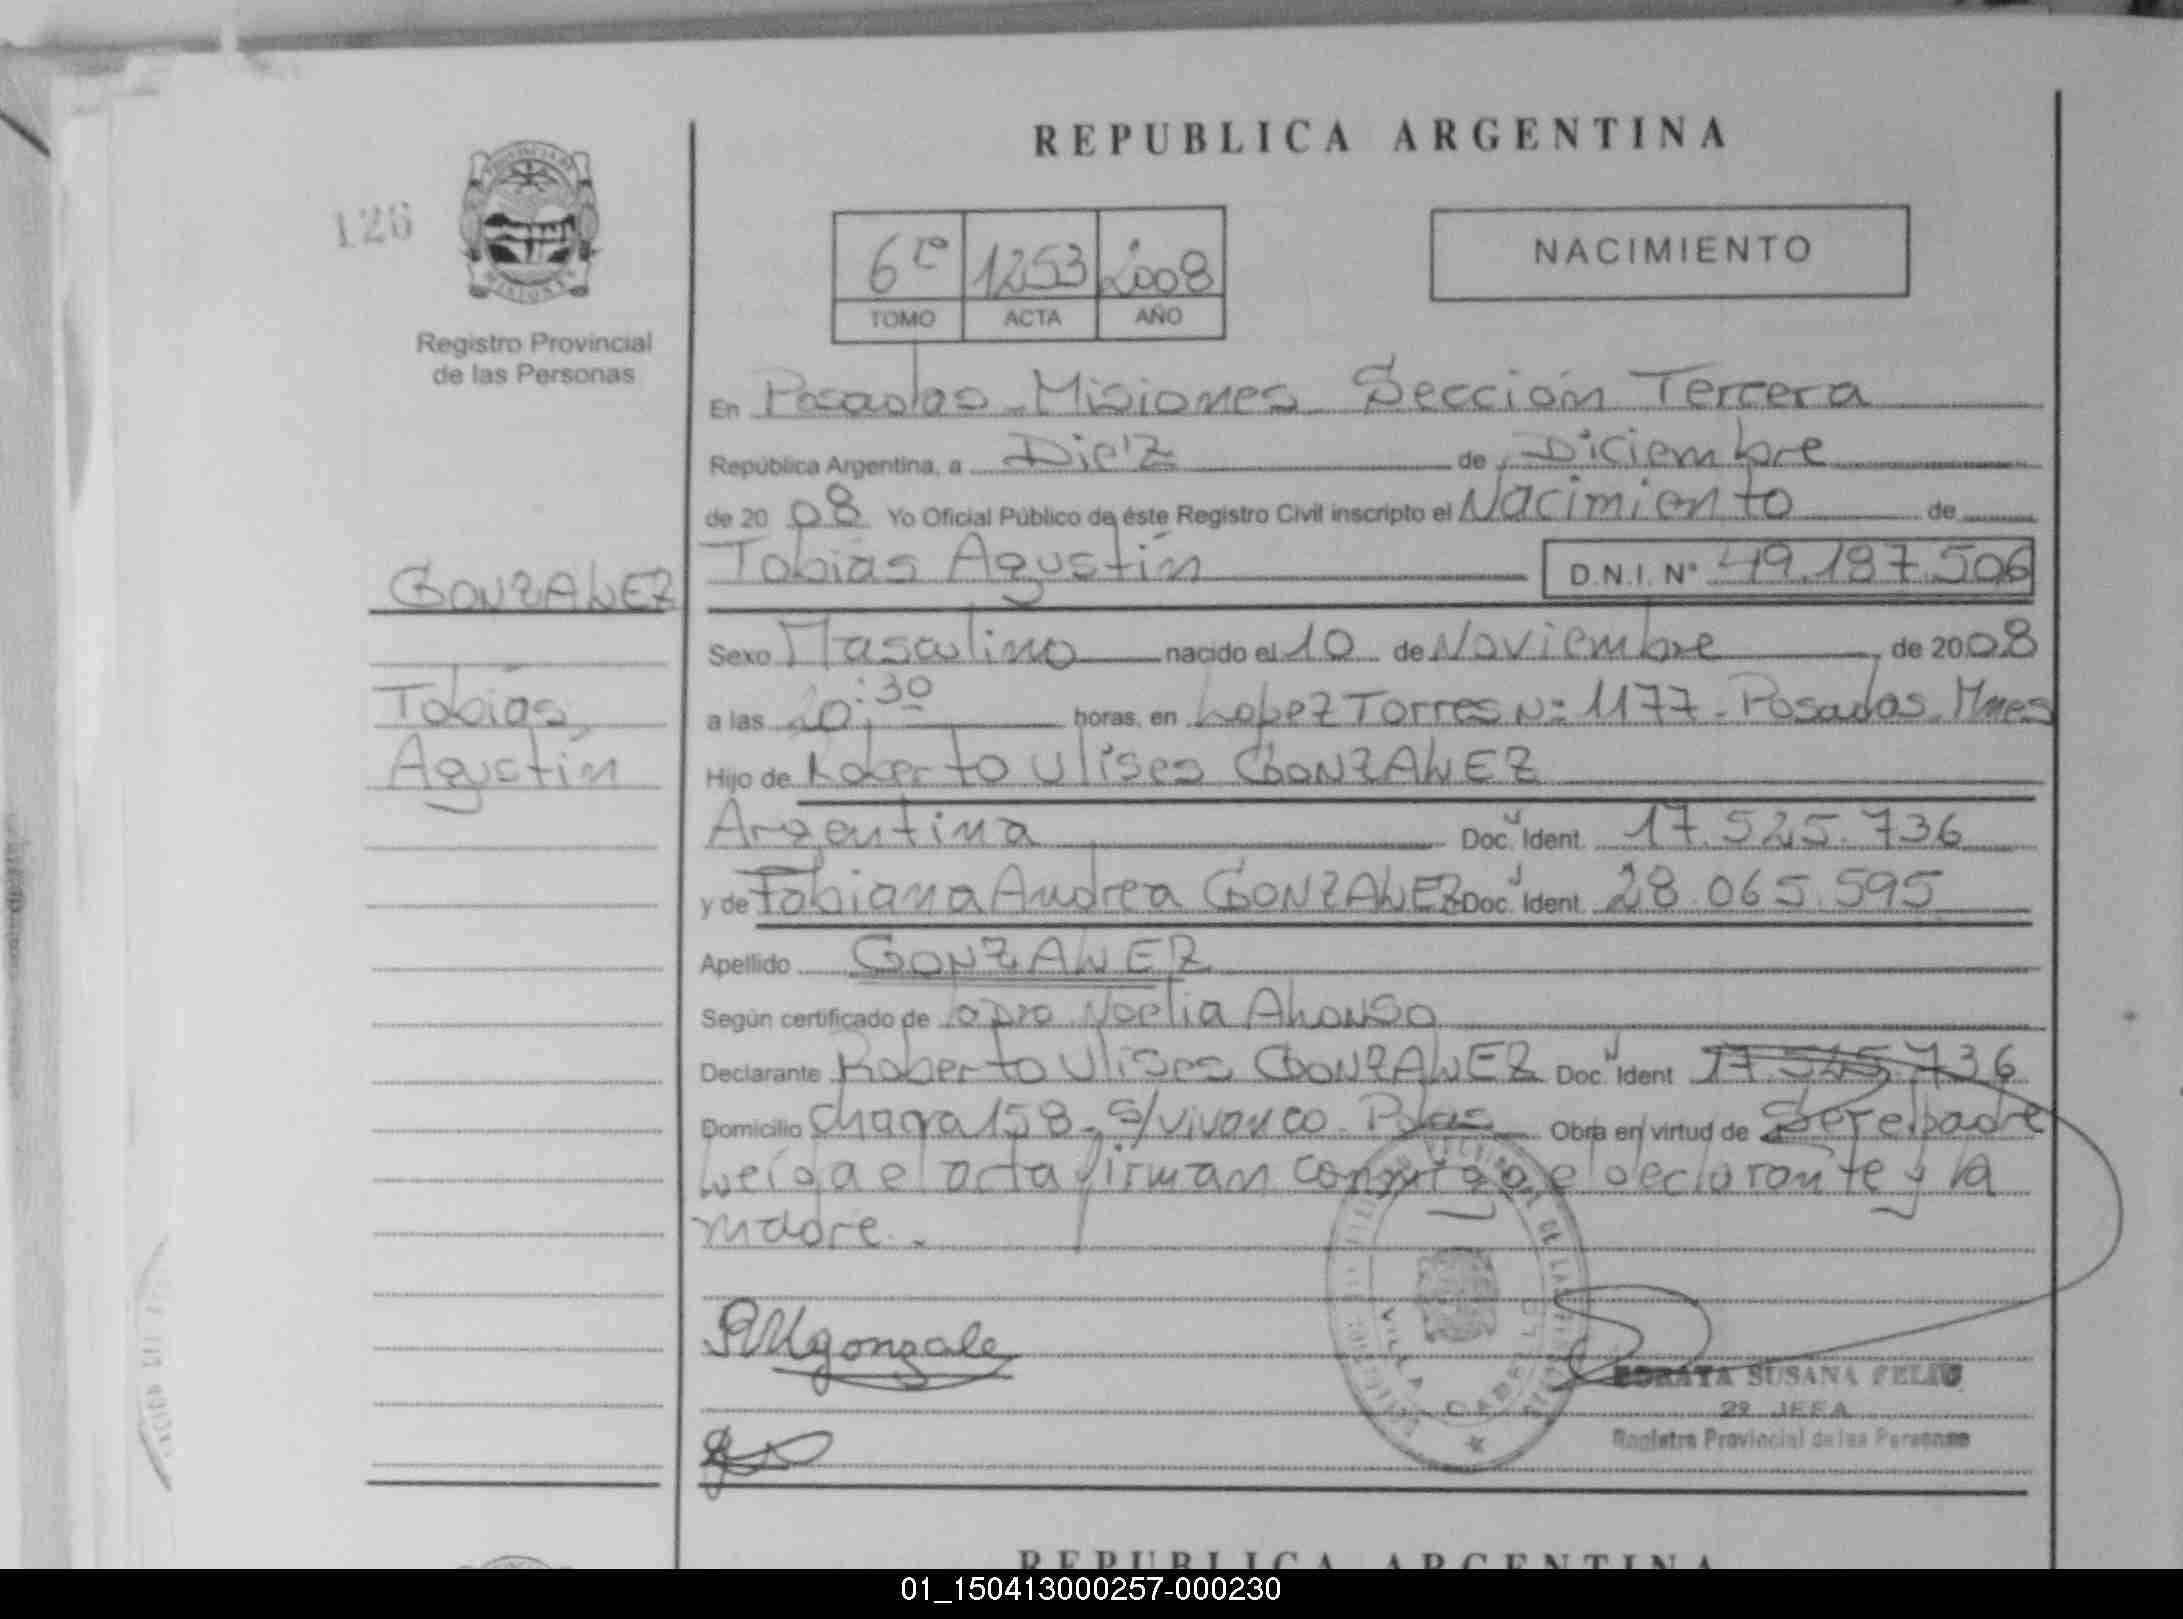 REPUBLICA ARGENTINA
126
6to 1253 2008
TOMO ACTA AÑO
NACIMIENTO
Registro Provincial
de las Personas
En Posadas - Misiones Sección Tercera
República Argentina, a Diez de Diciembre
de 2008 Yo Oficial Público de éste Registro Civil inscripto el Nacimiento de
GONZALEZ
Tobias Agustín D.N.I. Nº 49.187.506
Sexo Masculino nacido el 10 de Noviembre, de 2008
Tobias
Agustín
a las 20:30 horas, en Lopez Torres Nº 1177 - Posadas - Mnes
Hijo de Roberto Ulises GONZALEZ
Argentina Doc. Ident. 17.525.736
y de Fabiana Andrea GONZALEZ Doc. Ident. 28.065.595
Apellido GONZALEZ
Según certificado de Noelia Alonso
Declarante Roberto Ulises GONZALEZ Doc. Ident 17.525.736
Domicilio Chacra 158 - S/Vivanco - Pdas Obra en virtud de Ser el padre
Leída el acta firman conmigo el declarante y la
madre.-
RUgonzale
VILLA CABELLO
SUSANA FELIU
2º JEFA
Registro Provincial de las Personas
REPUBLICA ARGENTINA
01_150413000257-000230